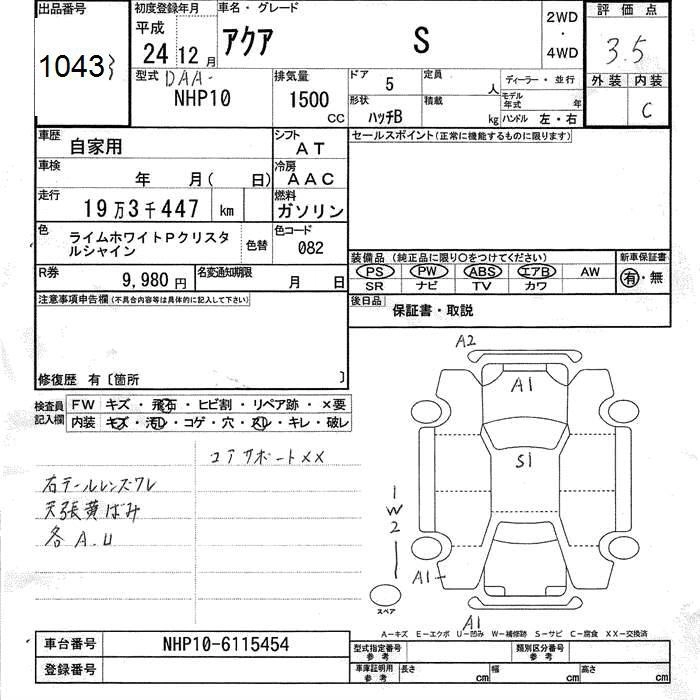 出品番号 初度登録年月 車名・グレード 2WD・4WD 評価点
1043 平成24年12月 アクア S 3.5
型式 DAA-NHP10 排気量 1500CC ドア 5 定員 人 ディーラー・並行 外装 内装 C
形状 ハッチB 積載 kg モデル年式 年 ハンドル 左・右
車歴 自家用 シフト AT セールスポイント(正常に機能するものに限ります)
車検 年 月( 日) 冷房 AAC
走行 19万3千447 km 燃料 ガソリン
色 ライムホワイトPクリスタルシャイン 色替 色コード 082
装備品(純正品に限り○をつけてください) 新車保証書
PS PW ABS エアB AW 有・無
SR ナビ TV カワ
R券 9,980円 名変通知期限 月 日
後日品 保証書・取説
注意事項申告欄(不具合内容等は具体的に記入して下さい)
修復歴 有〔箇所 〕
検査員記入欄 FW キズ・飛石・ヒビ割・リペア跡・×要
内装 キズ・汚レ・コゲ・穴・スレ・キレ・破レ
コアサポートXX
右テールレンズワレ
天張黄ばみ
各A.U
A2
A1
S1
1
W
2
A1
A1
スペア
A-キズ E-エクボ U-凹み W-補修跡 S-サビ C-腐食 XX-交換済
車台番号 NHP10-6115454 型式指定番号 参考 類別区分番号 参考
登録番号 車庫証明用 参考 長さ cm 幅 cm 高さ cm